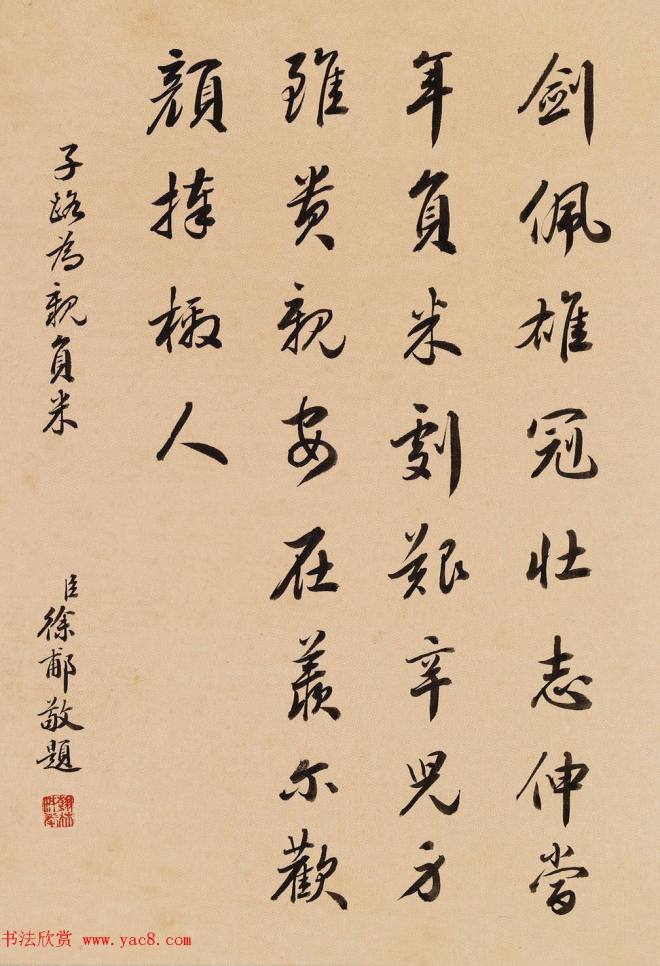 劍佩雄冠壯志伸當
年負米劇艱辛兒身
雖貴親安在羨爾歡
顏捧檄人
子路為親負米
臣徐郙敬題
书法欣赏 www.yac8.com